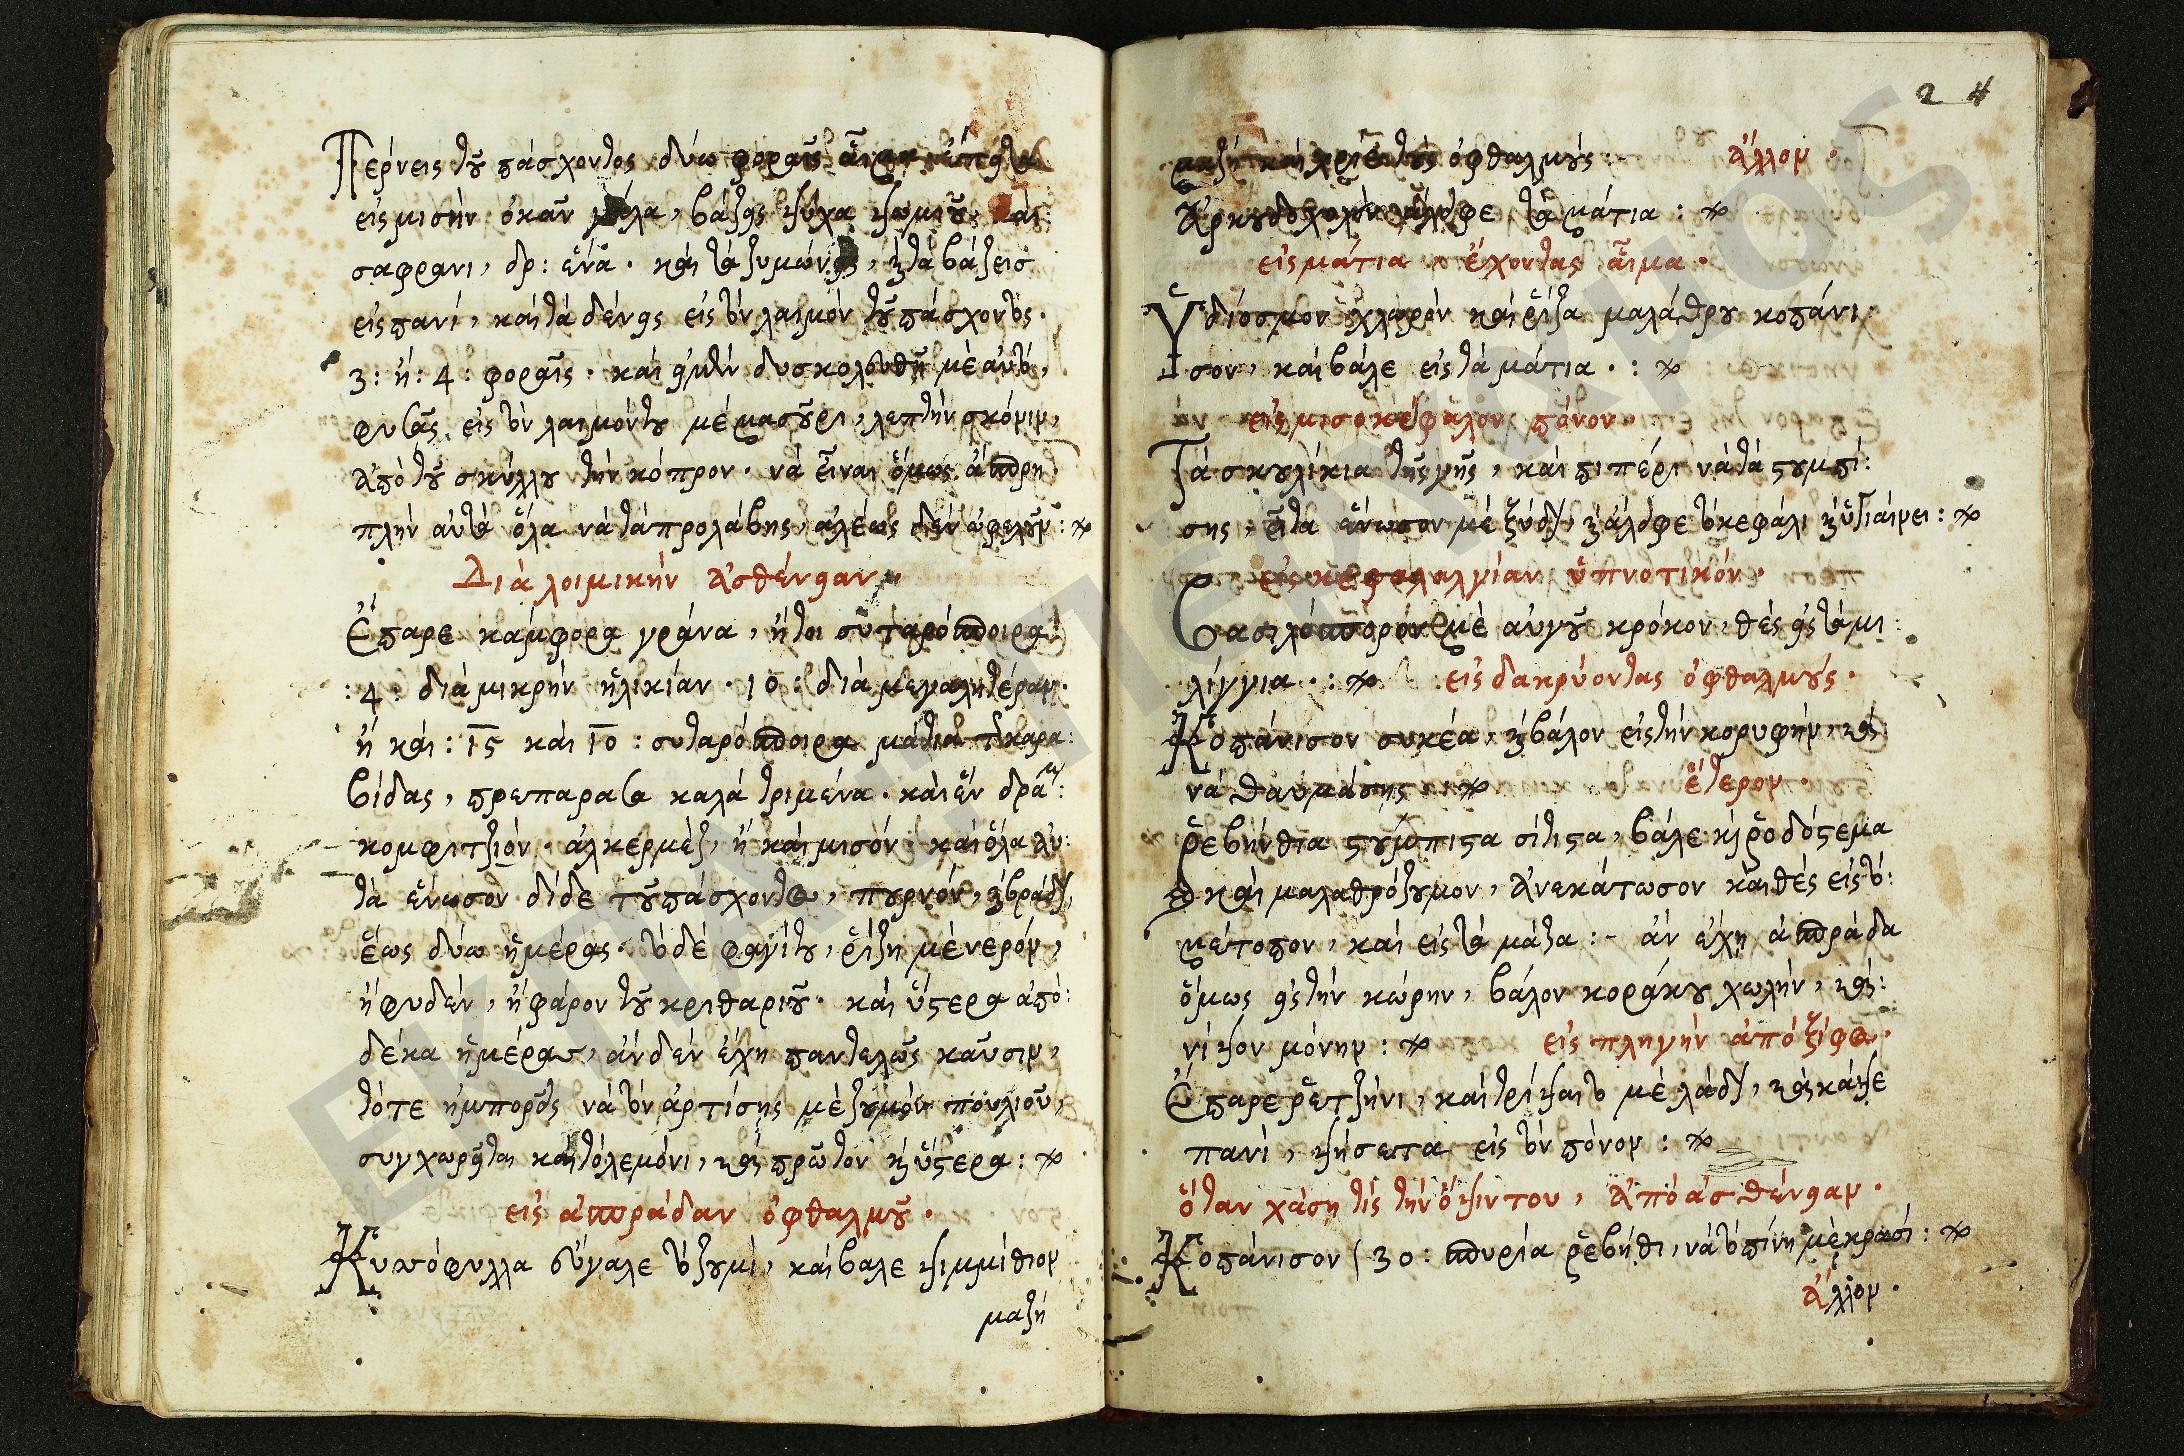 Πέρνεις τοῦ πάσχοντος δύω φοραῖς αἷμα
εἰς μισὴν ὀκᾶν γάλα, βάζεις ψύχα ψωμιοῦ καὶ
σαφρανι, δρ: ἕνα. καὶ τὰ ζυμώνεις, κ τὰ βάζεισ
εἰς πανί, καὶ τὰ δένεις εἰς τὸν λαιμόν τοῦ πάσχοντος.
3: ἤ: 4: φοραῖς. καὶ δυσκολευθῆ μὲ αὐτό,
φυσᾶς εἰς τὸν λαιμόν του μὲ μασοῦρι, λεπτὴν σκόνιν,
ἀπὸ τοῦ σκύλλου τὴν κόπρον. νὰ εἶναι ὅμως ἄσπρη
πλὴν αὐτὰ ὅλα νὰ τὰ προλάβης, ἀλέως δὲν ὠφελοῦν:
Διὰ λοιμικὴν ἀσθένειαν.
Ἔπαρε κάμφορα γράνα, ἤτοι σιταρόσποιρα:
:4: διὰ μικρὴν ἡλικίαν. 10: διὰ μεγαλητέραν.
ἢ καὶ: 15 καὶ 10: σιταρόσποιρα μάτια τῆς καρα:
βίδας, πρεπαρατα καλὰ τριμένα. καὶ ἓν δρᾶμ:
κομφιτζιόν. ἀλκερμὲζ, ἢ καὶ μισόν. καὶ ὅλα αὐ:
τὰ ἕνωσον δίδε τοῦ πάσχοντος, πουρνόν, κ βράδυ,
ἕως δύω ἡμέρας. τὸ δὲ φαγίτου, ῥίζη μὲ νερόν,
ἢ φυδέν, ἢ φάρον τοῦ κριθαριοῦ. καὶ ὕστερα ἀπὸ:
δέκα ἡμέρας, ἂν δὲν ἔχη παντελῶς καῦσιν,
τότε ἠμπορεῖς νὰ τὸν ἀρτίσης μὲ ζουμόν πουλιοῦ,
συγχωρεῖται καὶ τὸ λεμόνι, καὶ πρῶτον κ ὕστερα:
εἰς ἀσπράδαν ὀφθαλμοῦ.
Κυπόφυλλα εὔγαλε τὸ ζουμί, καὶ βαλε ψιμμίθιον
μαζὴ
24
μαζὴ καὶ χρίε τοὺς ὀφθαλμούς:- ἄλλον.
Ἀρκουδοχολὴν ἄλειφε τὰ μάτια:
εἰς μάτια, ἔχοντας αἷμα.
Ὑδίοσμον ὀχλωρόν καὶ ῥίζα μαλάθρου κοπάνι:
σον, καὶ βάλε εἰς τὰ μάτια.:
εἰς μισοκέφαλον πόνον
Τὰ σκουλίκια τῆς γῆς, καὶ πιπέρι νὰ τὰ στουμπί:
σης, εἶτα ἕνωσον μὲ ξύδι, κ ἄλοιφε τὸ κεφάλι κ ὑγιαίνει:
εἰς κεφαλαλγίαν ὑπνοτικόν.
Βασιλόσπορον μὲ αὐγοῦ κρόκον, θὲς εἰς τὰ μι:
λίγγια.: εἰς δακρύοντας ὀφθαλμούς.
Κοπάνισον συκέα, κ βάλον εἰς τὴν κορυφήν, καὶ
νὰ θαυμάσης ἕτερον.
ῥεβήνθια στουμπιστα σίτιστα, βάλε κ ῥοδόστεμα
καὶ μαλαθρόζουμον, ἀνεκάτωσον καὶ θὲς εἰς τὸ:
μέτοπον, καὶ εἰς τὰ μάτια:- ἂν ἔχη ἀσπράδα
ὅμως εἰς τὴν κώρην, βάλον κοράκου χωλὴν, καὶ:
νίψον μόνην: εἰς πληγὴν ἀπὸ ξίφος.
Ἔπαρε ῥετζήνι, καὶ τρίψαι το μὲ λάδι, καὶ κάψε
πανὶ, ψήσετα εἰς τὸν πόνον:
ὅταν χάση τὶς τὴν ὄψιν του, ἀπὸ ἀσθένειαν.
Κοπάνισον 30: σπυρία ῥεβήθι, νὰ τὸ πίνη μὲ κρασί:
ἄλλον.